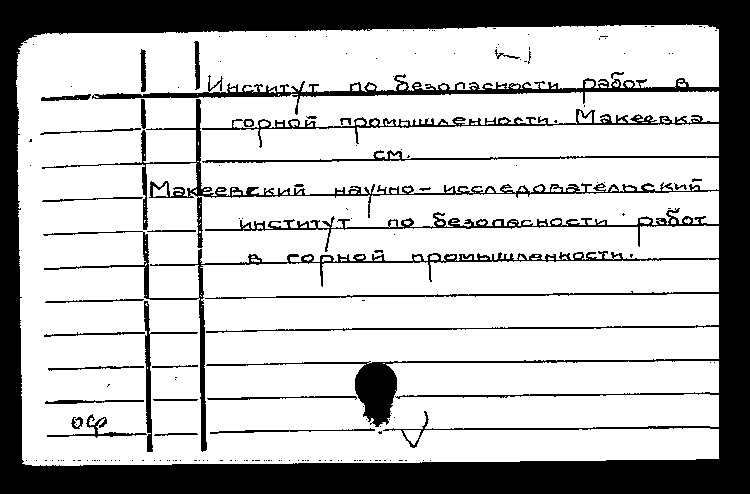 Институт по безопасности работ в
горной промышленности. Макеевка.
см.
Макеевский научно-исследовательский
институт по безопасности работ
в горной промышленности.
оф